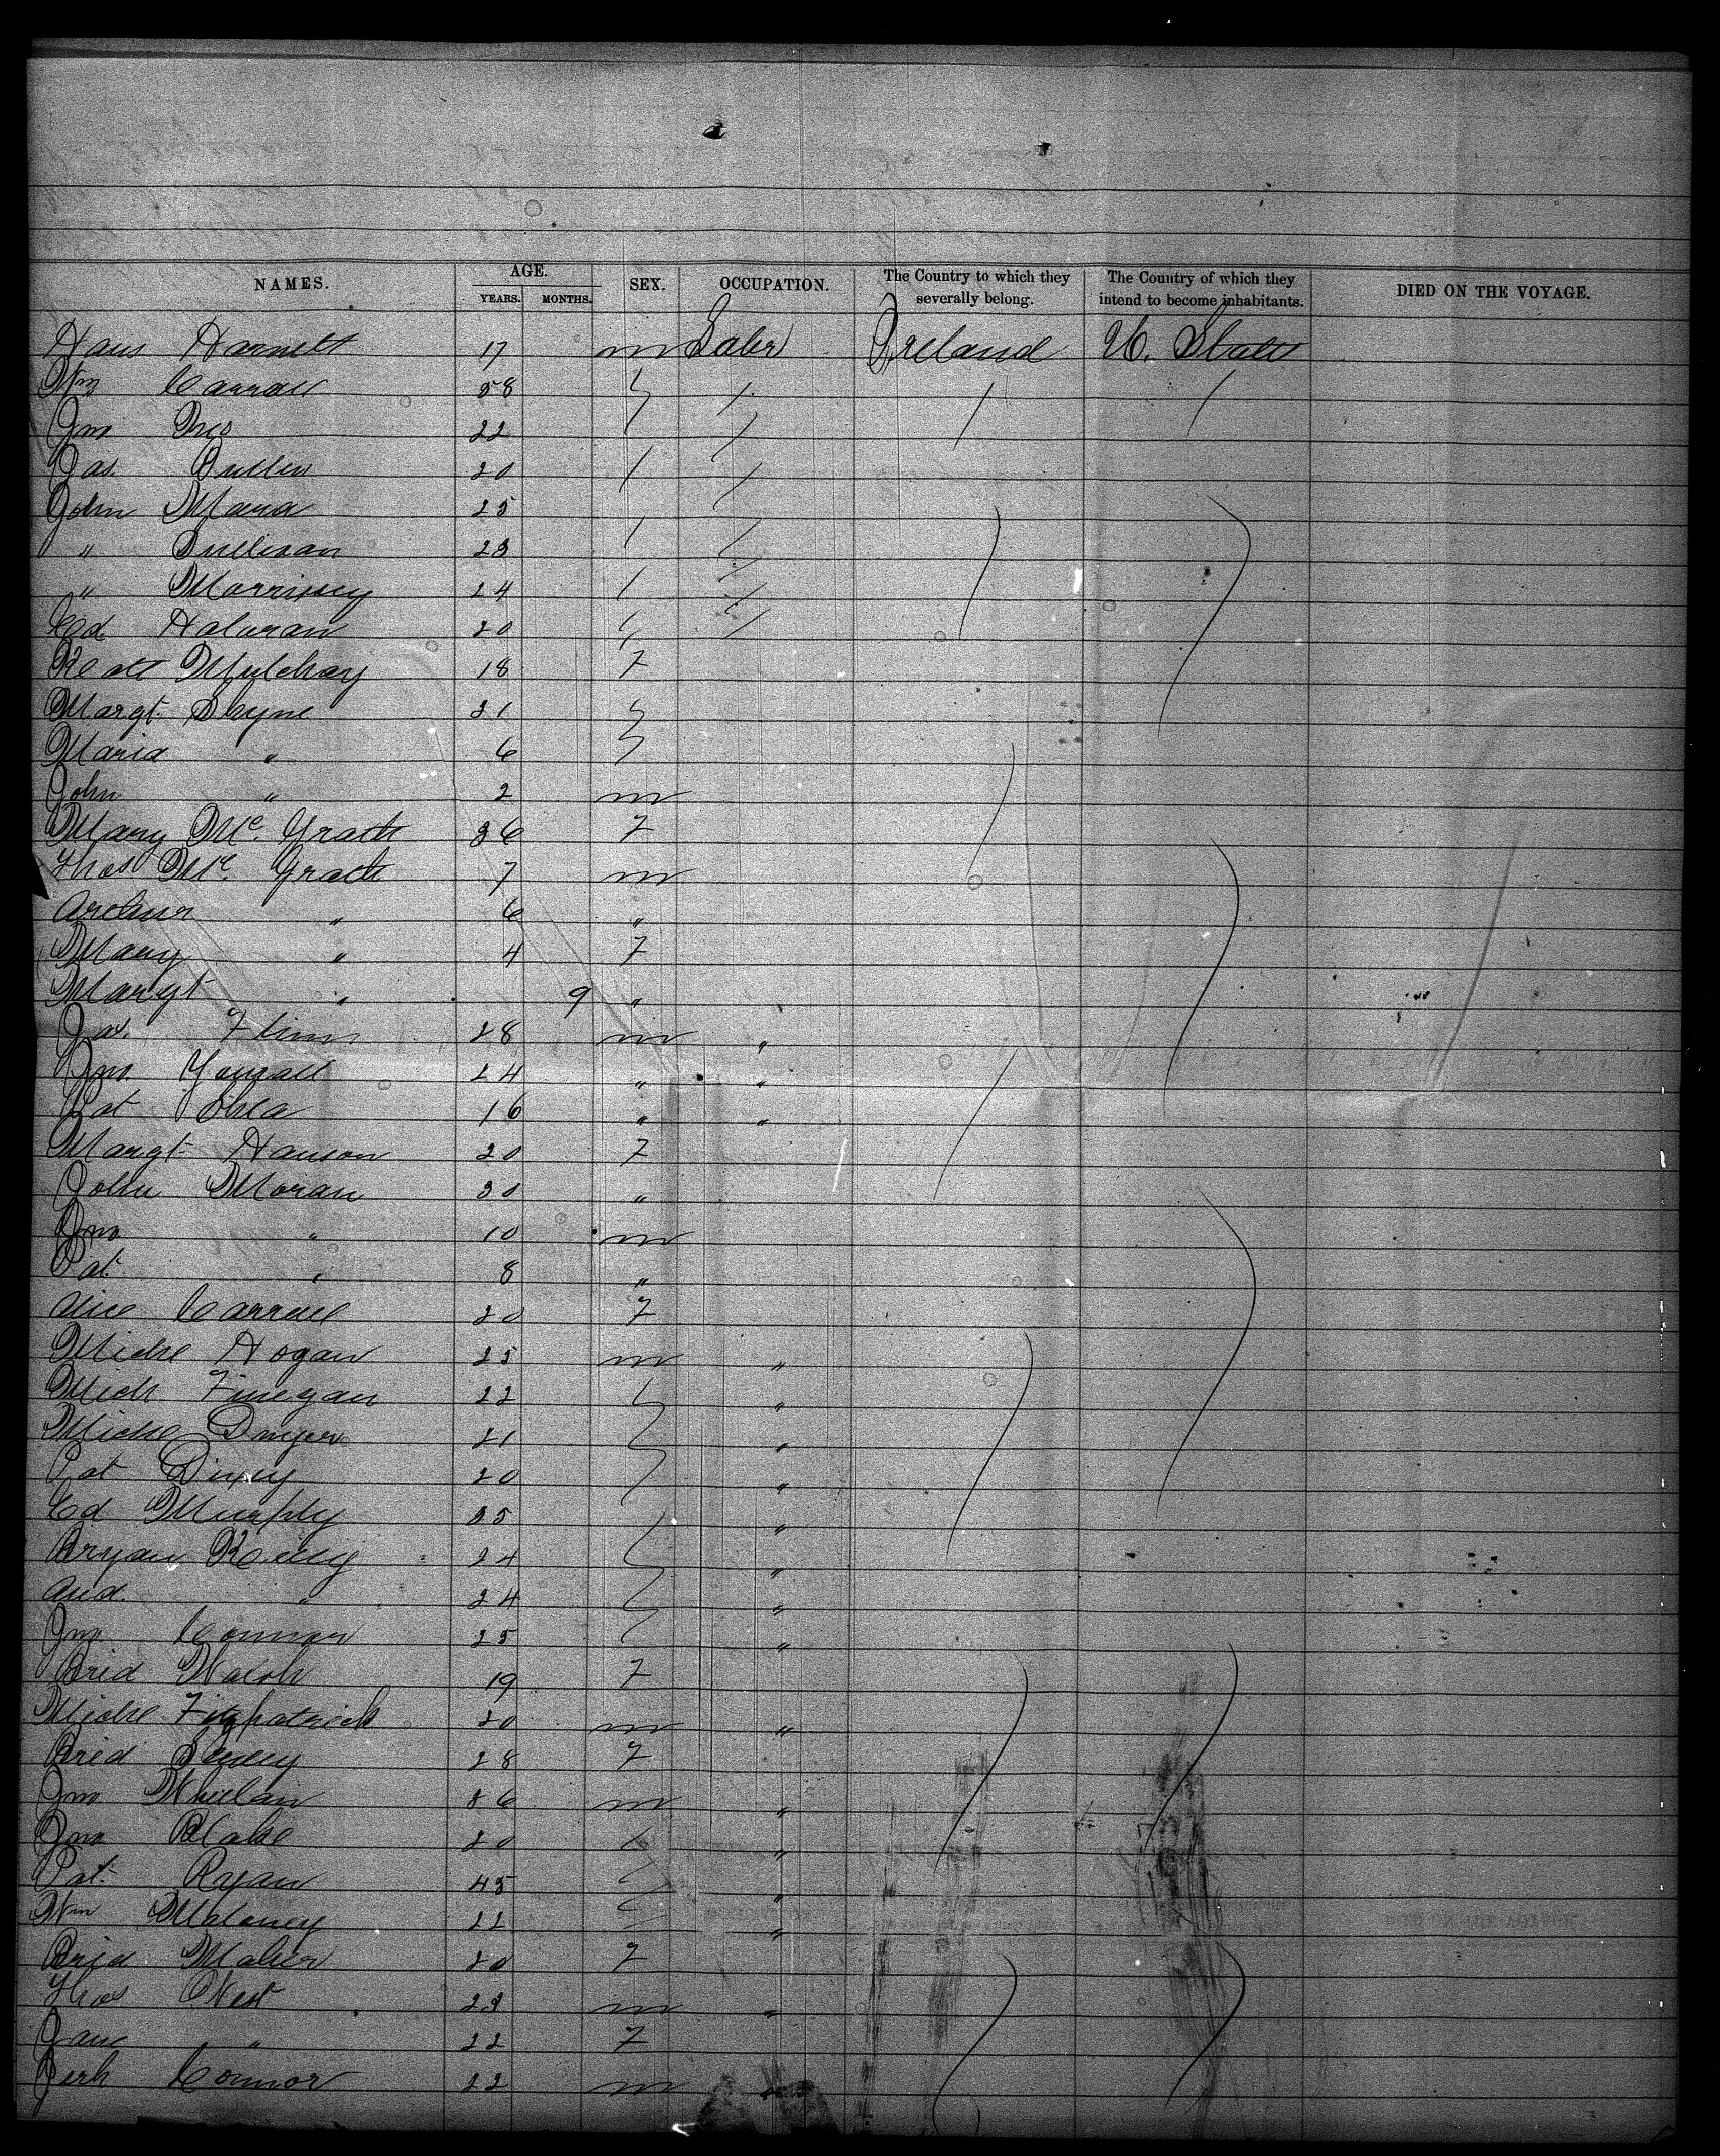 NAMES. AGE. SEX. OCCUPATION. The Country to which they severally belong. The Country of which they intend to become inhabitants. DIED ON THE VOYAGE.
YEARS. MONTHS.
Hans Harnett 17 m Labr Ireland U. States
Wm Carroll 58
Jno 22
Jas. Cullen 20
John Mara 25
" Sullivan 23
" Morrissey 24
Ed Haloran 20
Kate Mulchay 18 F
Margt. Shyne 31
Maria " 6
John " 2 m
Mary Mc. Grath 36 F
Thos Mc. Grath 7 m
Arthur " 6 "
Mary " 4 F
Margt " 9 "
Jas. Flinn 28 m "
Jno. 24 " "
Pat Shea 16 " "
Margt Hanson 20 F
John Moran 30 "
Jno " 10 m
Pat. " 8 "
Alice Carroll 20 F
Michl Hogan 25 m "
Mich Finegan 22 "
Michl Dwyer 21 "
Pat 20 "
Ed Murphy 35 "
Bryan Reilly 24 "
And. " 24 "
Jno Connor 25 "
Brid Walsh 19 F
Michl Fitzpatrick 20 m "
Brid 28 F
Jno Whelan 56 m "
Jno Blake 20 "
Pat. Ryan 45 "
Wm Moloney 22 "
Brid Maher 20 F
Thos West 23 m "
Jane " 22 F
Jerh Connor 22 m "